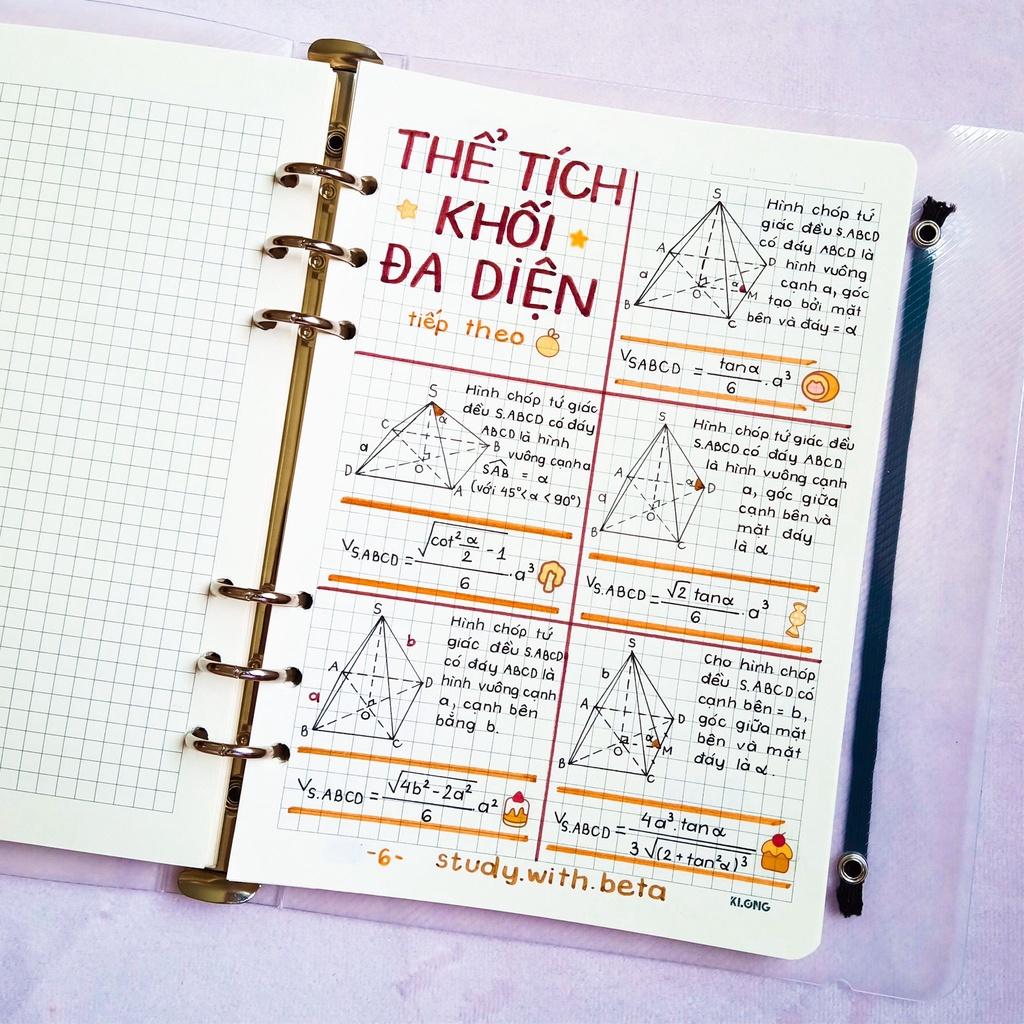 THỂ TÍCH
KHỐI
ĐA DIỆN
tiếp theo
S
A
a
B
O
C
D
M
α
Hình chóp tứ
giác đều S.ABCD
có đáy ABCD là
hình vuông
cạnh a, góc
tạo bởi mặt
bên và đáy = α
V_SABCD = tanα/6 . a³
S
α
C
a
D
O
B
A
Hình chóp tứ giác
đều S.ABCD có đáy
ABCD là hình
vuông cạnh a
SAB̂ = α
(với 45°<α<90°)
V_S.ABCD = √(cot² α/2 - 1)/6 . a³
S
A
a
B
O
C
α
D
Hình chóp tứ giác đều
S.ABCD có đáy ABCD
là hình vuông cạnh
a, góc giữa
cạnh bên và
mặt đáy
là α
V_S.ABCD = √2 tanα/6 . a³
S
b
A
a
B
O
C
D
Hình chóp tứ
giác đều S.ABCD
có đáy ABCD là
hình vuông cạnh
a, cạnh bên
bằng b.
V_S.ABCD = √(4b² - 2a²)/6 . a²
S
b
A
B
O
C
D
α
M
Cho hình chóp
đều S.ABCD có
cạnh bên = b,
góc giữa mặt
bên và mặt
đáy là α.
V_S.ABCD = 4a³.tanα/3√(2+tan²α)³
-6- study.with.beta
KLONG